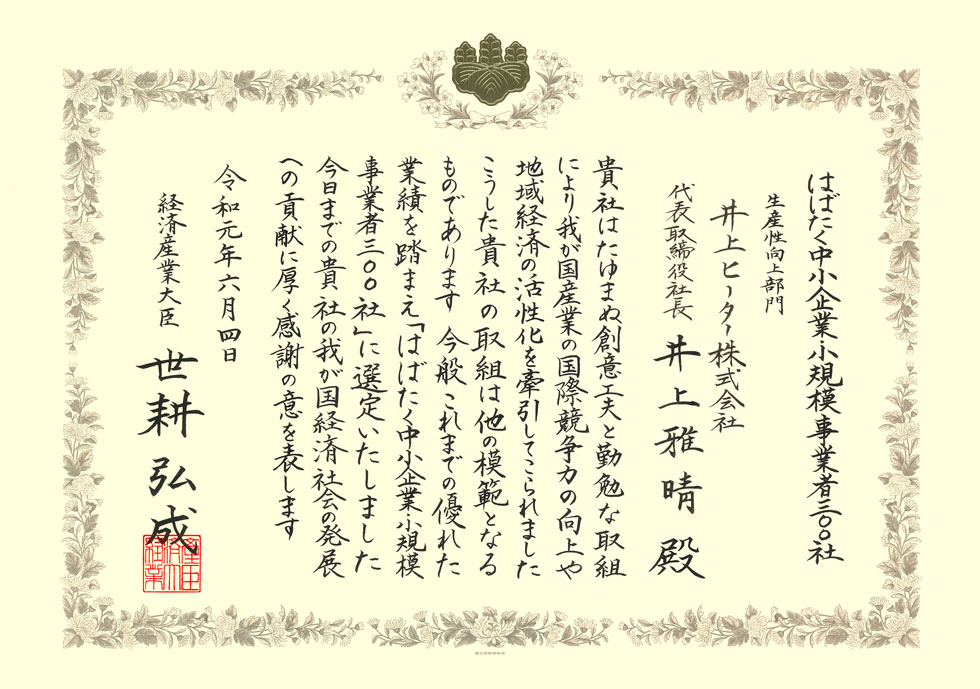 はばたく中小企業・小規模事業者三〇〇社
生産性向上部門
井上ヒーター株式会社
代表取締役社長 井上雅晴 殿
貴社はたゆまぬ創意工夫と勤勉な取組
により我が国産業の国際競争力の向上や
地域経済の活性化を牽引してこられました
こうした貴社の取組は他の模範となる
ものであります 今般これまでの優れた
業績を踏まえ「はばたく中小企業・小規模
事業者三〇〇社」に選定いたしました
今日までの貴社の我が国経済社会の発展
への貢献に厚く感謝の意を表します
令和元年六月四日
経済産業大臣 世耕弘成